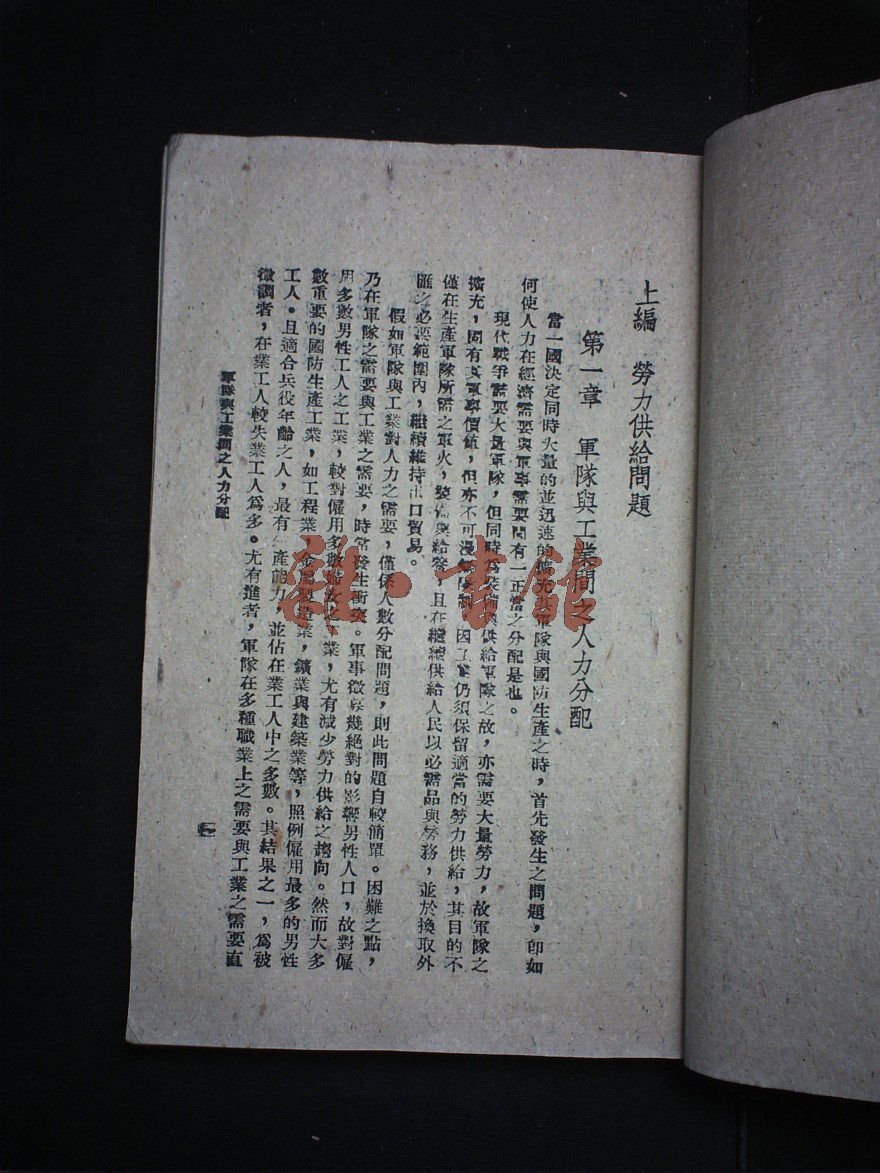 上編　勞力供給問題
第一章　軍隊與工業間之人力分配
當一國決定同時大量的並迅速的擴充其軍隊與國防生產之時，首先發生之問題，卽如
何使人力在經濟需要與軍事需要間有一正當之分配是也。
現代戰爭需要大量軍隊，但同時為裝備與供給軍隊之故，亦需要大量勞力，故軍隊之
擴充，固有其軍事價值，但亦不可漫無限制，因工業仍須保留適當的勞力供給，其目的不
僅在生產軍隊所需之軍火，裝備與給養，且在繼續供給人民以必需品與勞務，並於換取外
匯之必要範圍內，繼續維持出口貿易。
假如軍隊與工業對人力之需要，僅係人數分配問題，則此問題自較簡單。困難之點，
乃在軍隊之需要與工業之需要，時常發生衝突。軍事徵募幾絕對的影響男性人口，故對僱
用多數男性工人之工業，較對僱用多數婦女之工業，尤有減少勞力供給之趨向。然而大多
數重要的國防生產工業，如工程業，金屬製造業，鑛業與建築業等，照例僱用最多的男性
工人。且適合兵役年齡之人，最有生產能力，並佔在業工人中之多數。其結果之一，爲被
徵調者，在業工人較失業工人爲多。尤有進者，軍隊在多種職業上之需要與工業之需要直
軍隊與工業間之人力分配
一
雜·書館